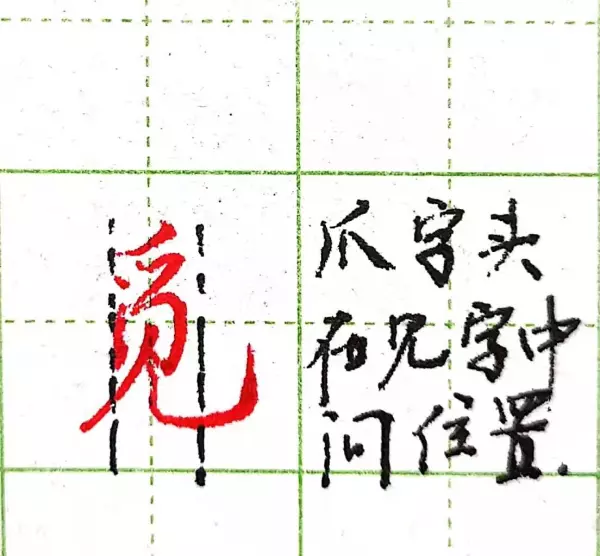 觅
爪字头
在见字中
间位置.